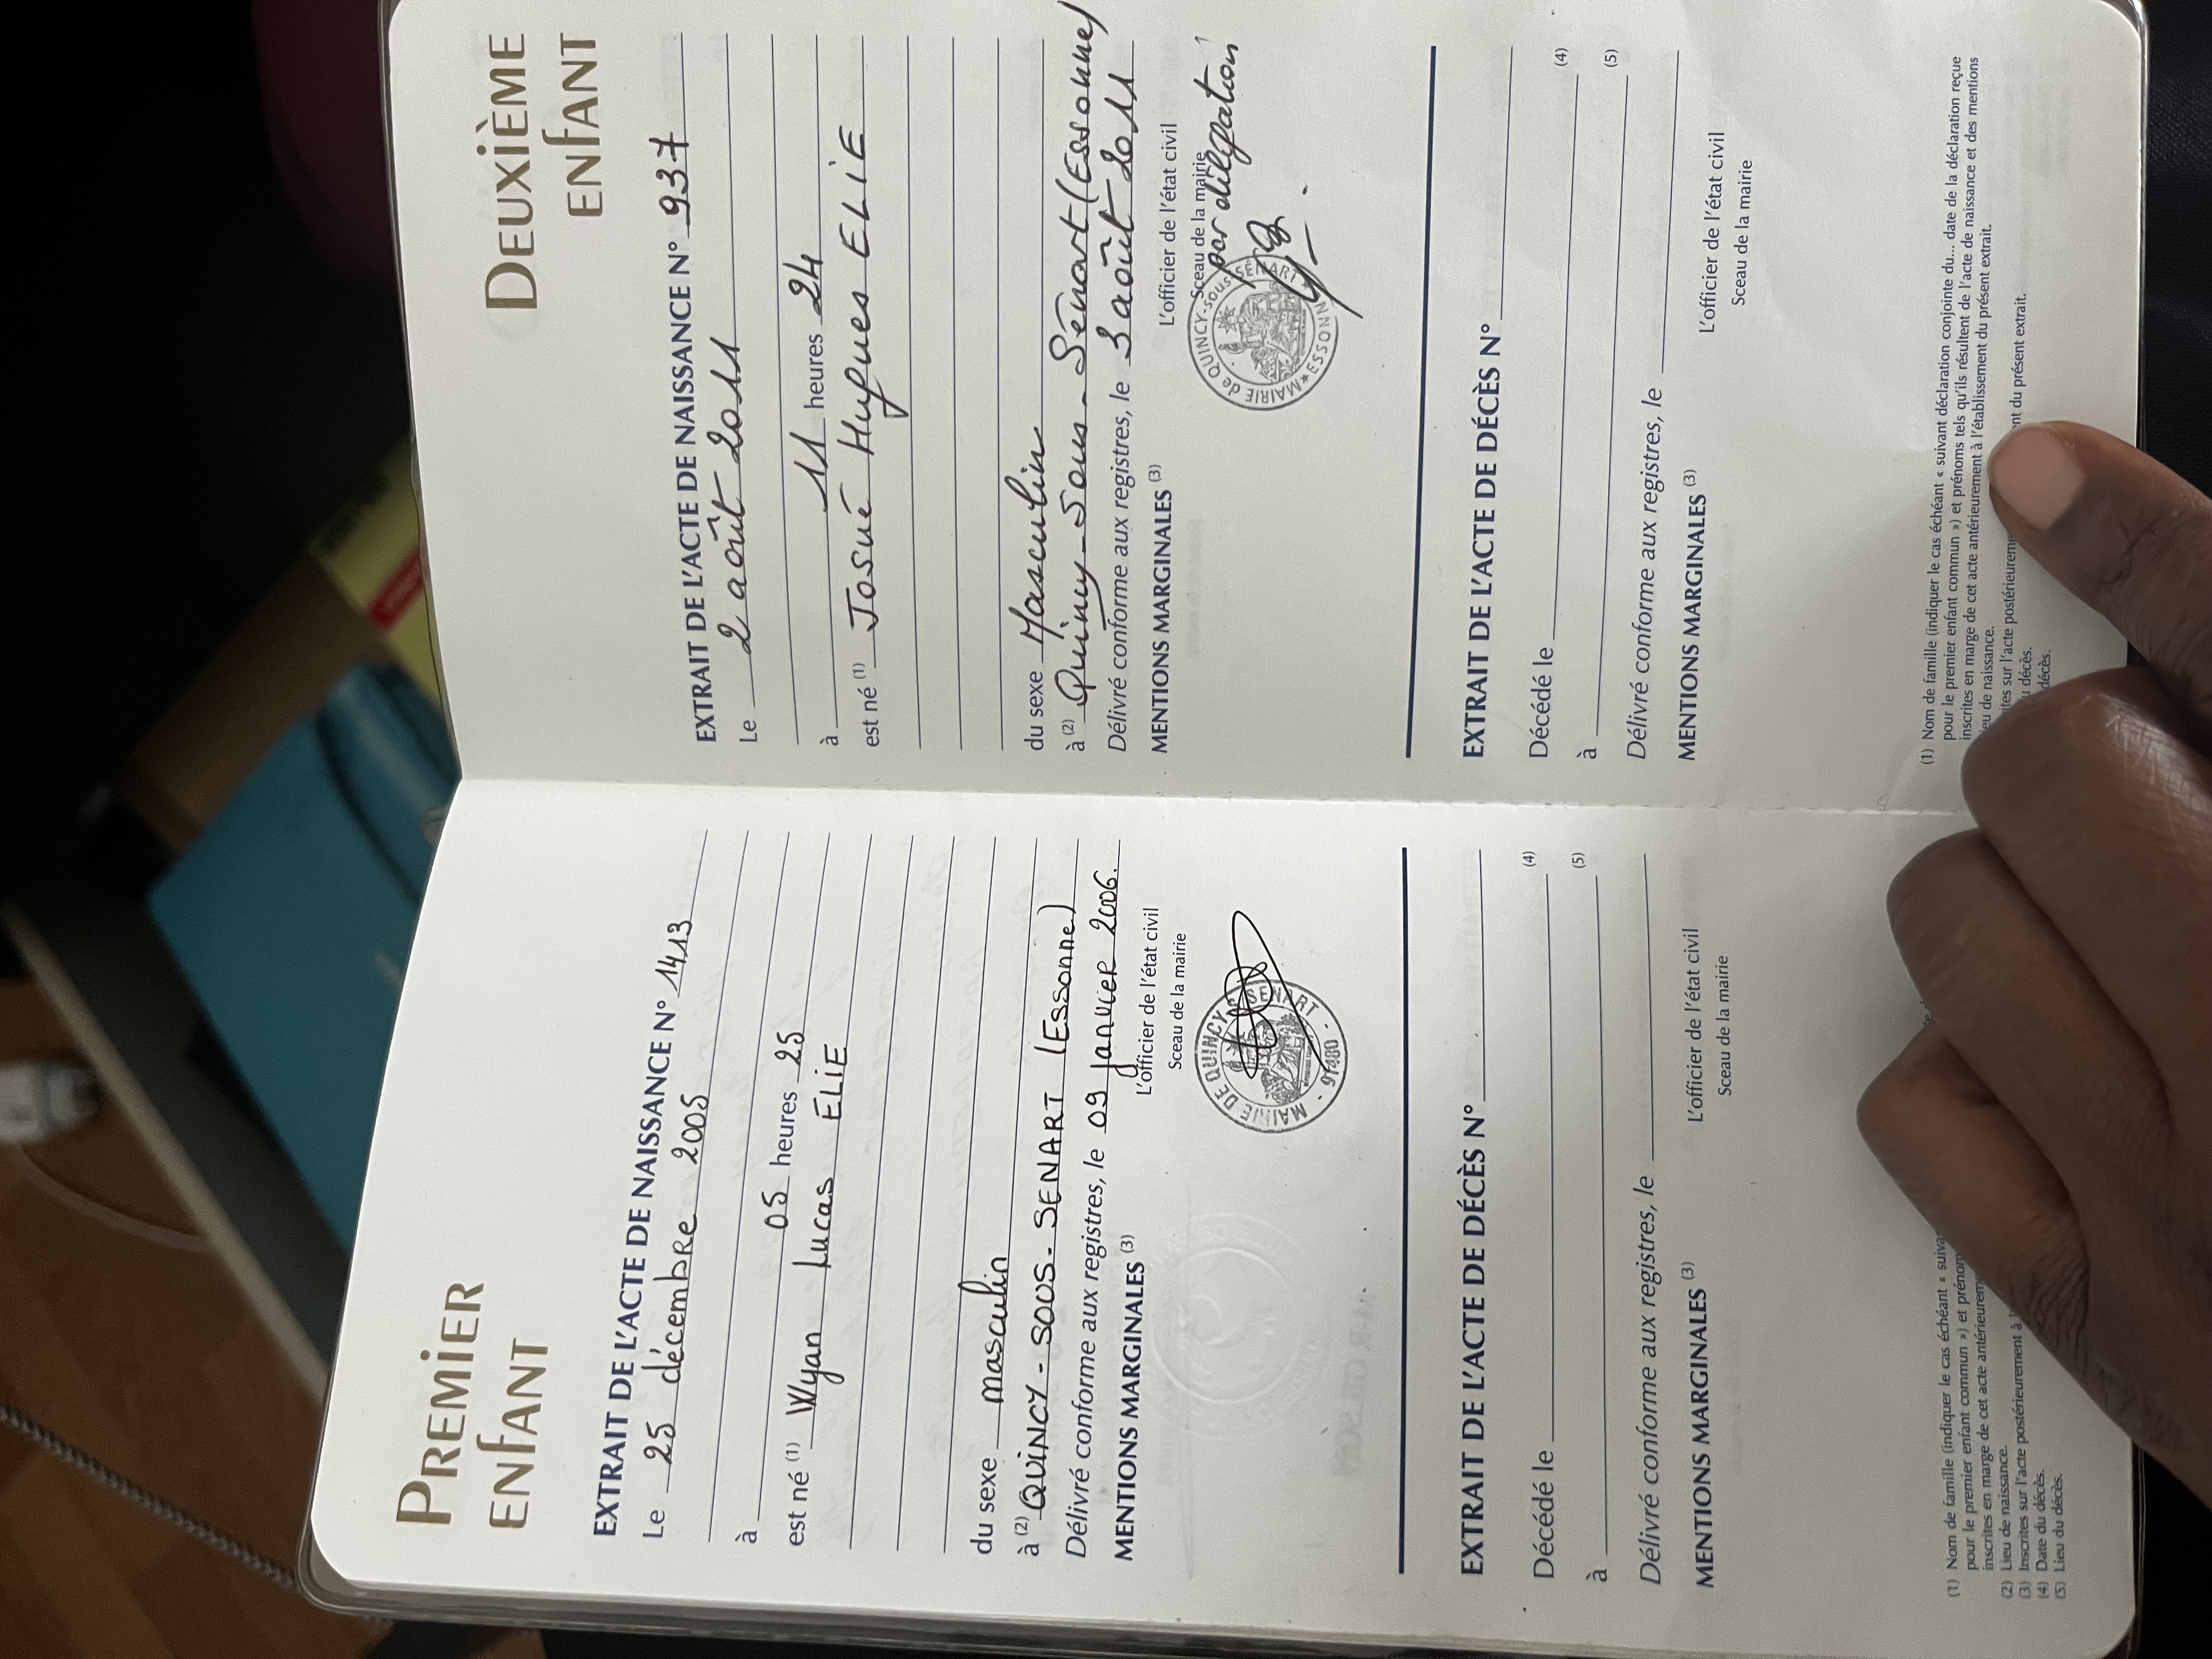 PREMIER
ENFANT
EXTRAIT DE L'ACTE DE NAISSANCE N° 1413
Le 25 décembre 2005
à 05 heures 25
est né (1) Wyan Lucas ELIE
du sexe masculin
à (2) QUINCY-SOUS-SENART (Essonne)
Délivré conforme aux registres, le 09 janvier 2006.
MENTIONS MARGINALES (3)
L'officier de l'état civil
Sceau de la mairie
MAIRIE DE QUINCY SENART - 91480 -
EXTRAIT DE L'ACTE DE DÉCÈS N°
Décédé le (4)
à (5)
Délivré conforme aux registres, le
MENTIONS MARGINALES (3)
L'officier de l'état civil
Sceau de la mairie
(1) Nom de famille (indiquer le cas échéant « suiva
pour le premier enfant commun ») et prénom
inscrites en marge de cet acte antérieurem
(2) Lieu de naissance.
(3) Inscrites sur l'acte postérieurement à
(4) Date du décès.
(5) Lieu du décès.
DEUXIÈME
ENFANT
EXTRAIT DE L'ACTE DE NAISSANCE N° 937
Le 2 août 2011
à 11 heures 24
est né (1) Josué Hugues ELIE
du sexe Masculin
à (2) Quincy-Sous-Sénart (Essonne)
Délivré conforme aux registres, le 3 août 2011
MENTIONS MARGINALES (3)
L'officier de l'état civil
Sceau de la mairie
par délégation
MAIRIE de QUINCY-sous-SÉNART ★ ESSONNE
EXTRAIT DE L'ACTE DE DÉCÈS N°
Décédé le (4)
à (5)
Délivré conforme aux registres, le
MENTIONS MARGINALES (3)
L'officier de l'état civil
Sceau de la mairie
(1) Nom de famille (indiquer le cas échéant « suivant déclaration conjointe du... date de la déclaration reçue
pour le premier enfant commun ») et prénoms tels qu'ils résultent de l'acte de naissance et des mentions
inscrites en marge de cet acte antérieurement à l'établissement du présent extrait.
ieu de naissance.
ites sur l'acte postérieureme nt du présent extrait.
u décès.
décès.